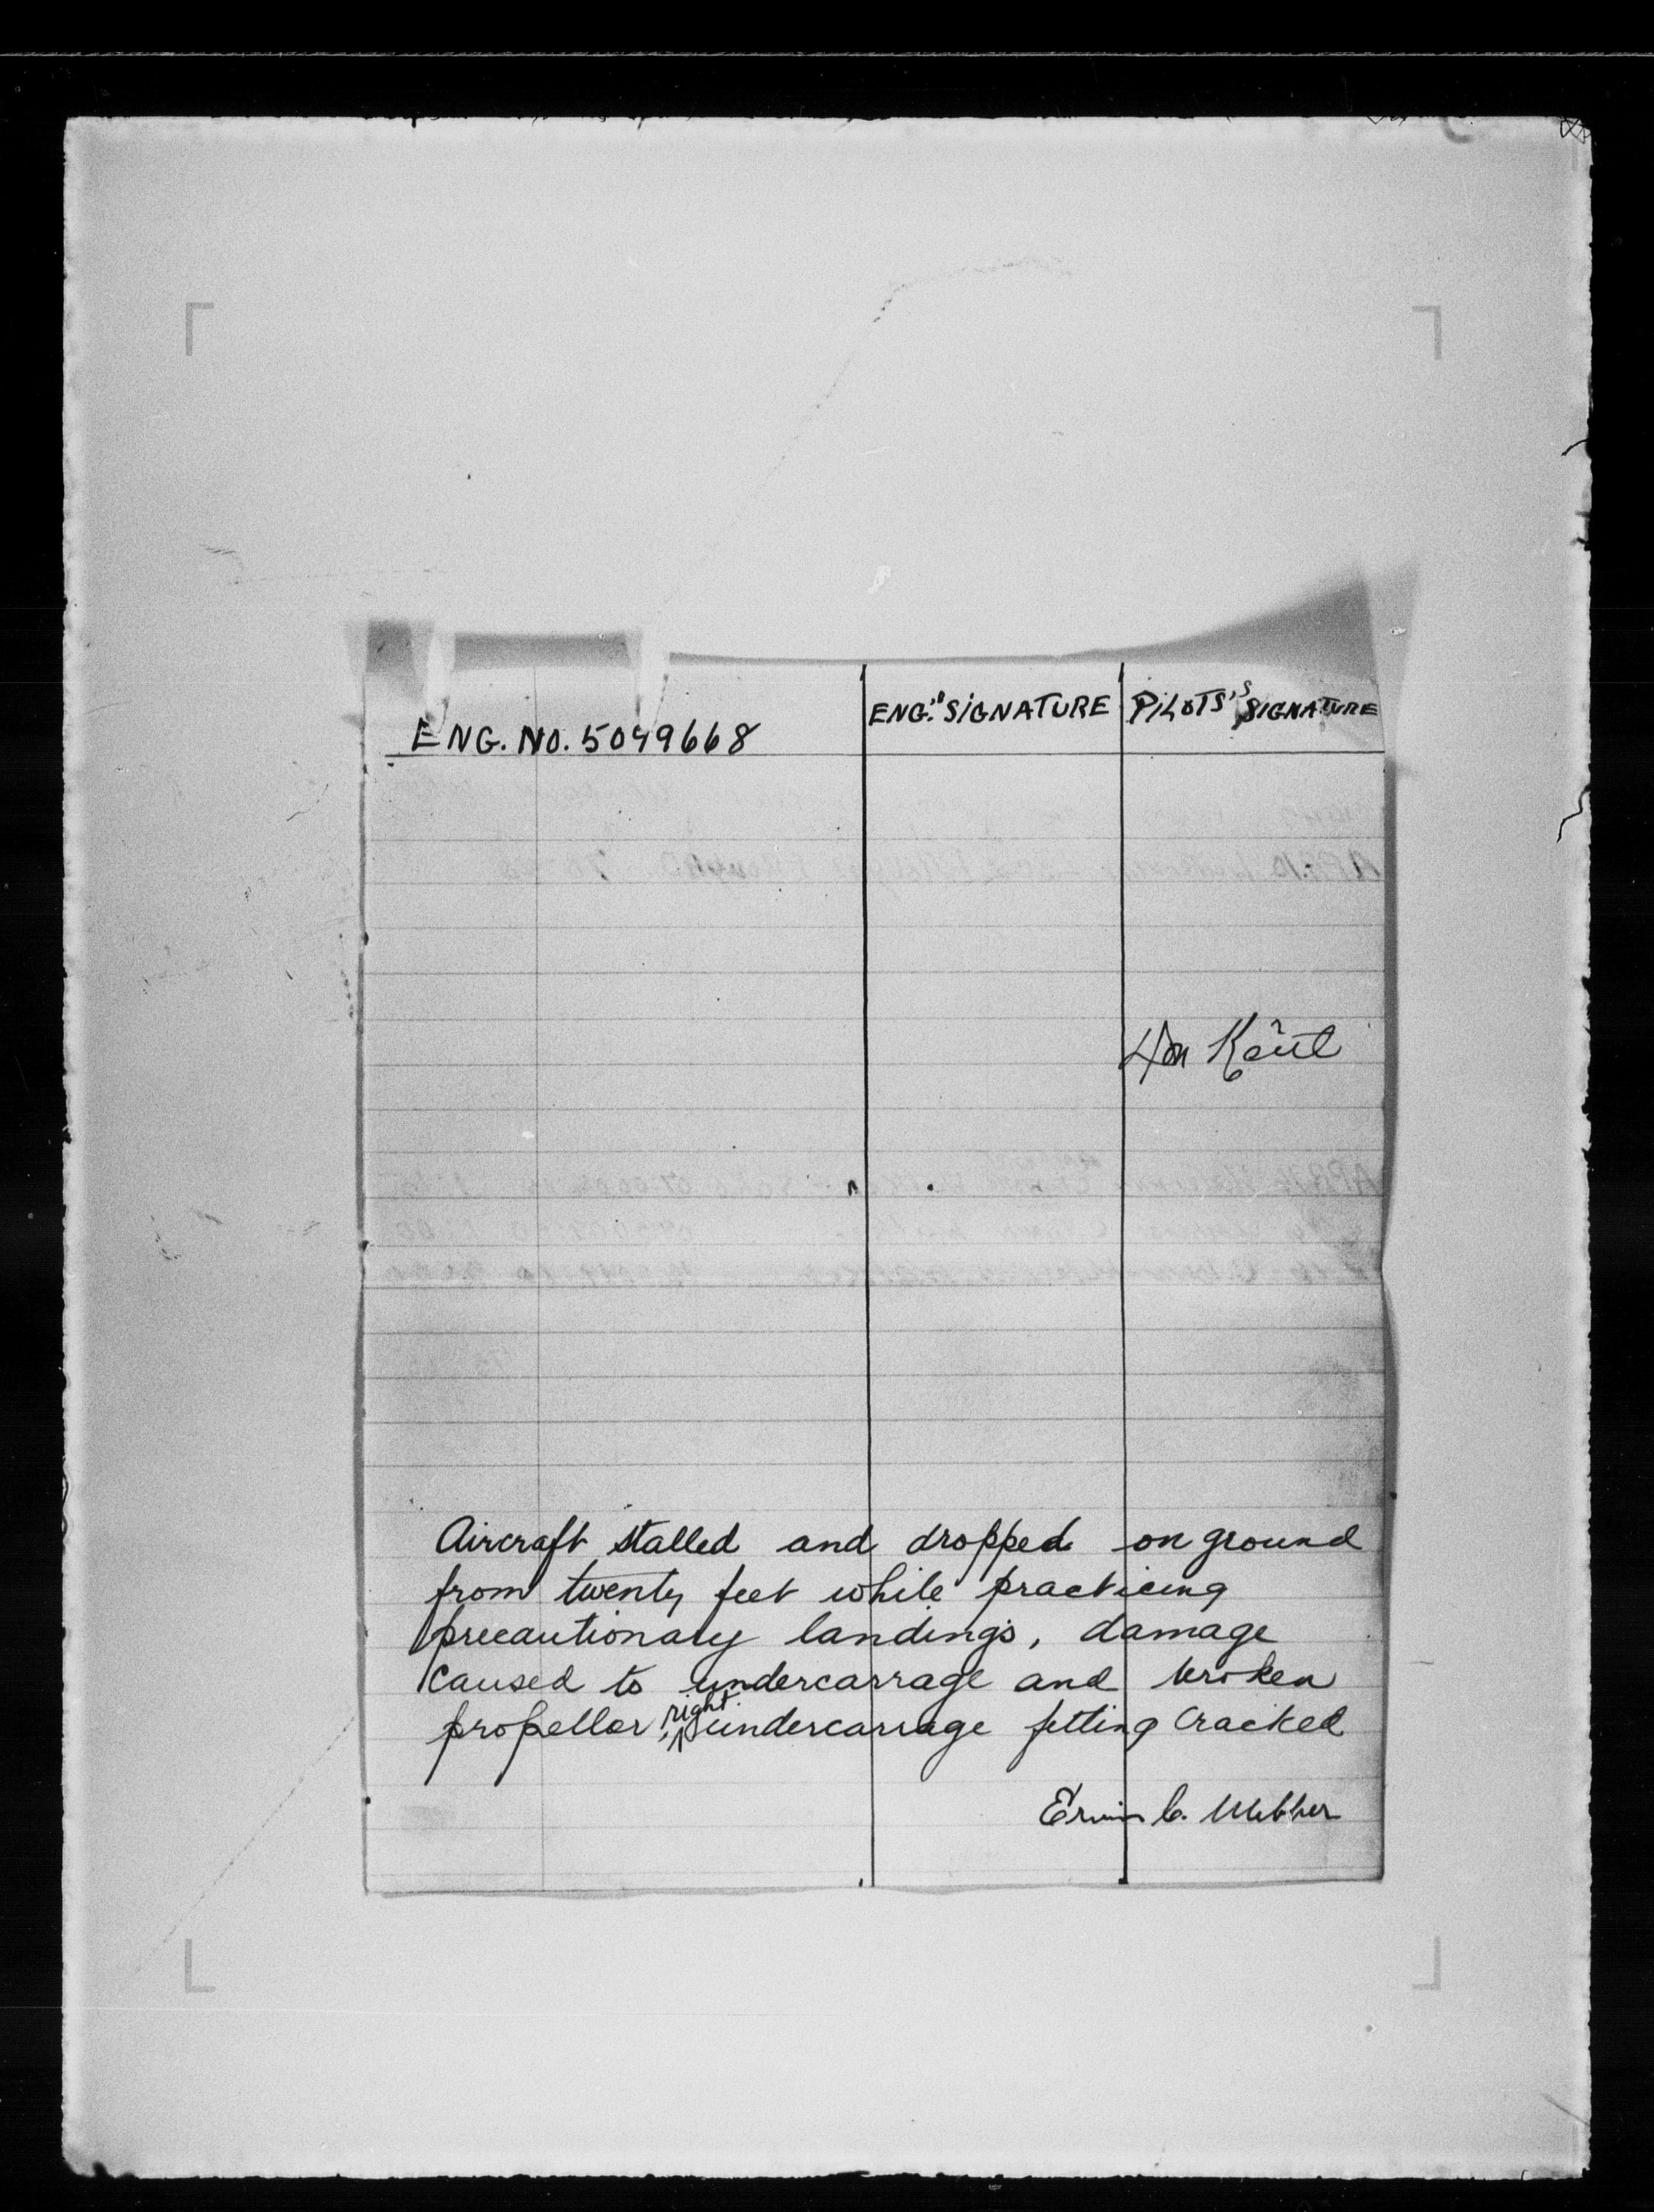 ENG. NO. 5049668
ENG.'S SIGNATURE
PILOTS'S SIGNATURE
Aircraft stalled and dropped on ground
from twenty feet while practicing
precautionary landings, damage
caused to undercarrage and broken
propellor, right undercarrage fitting cracked
Erwin C. Webber